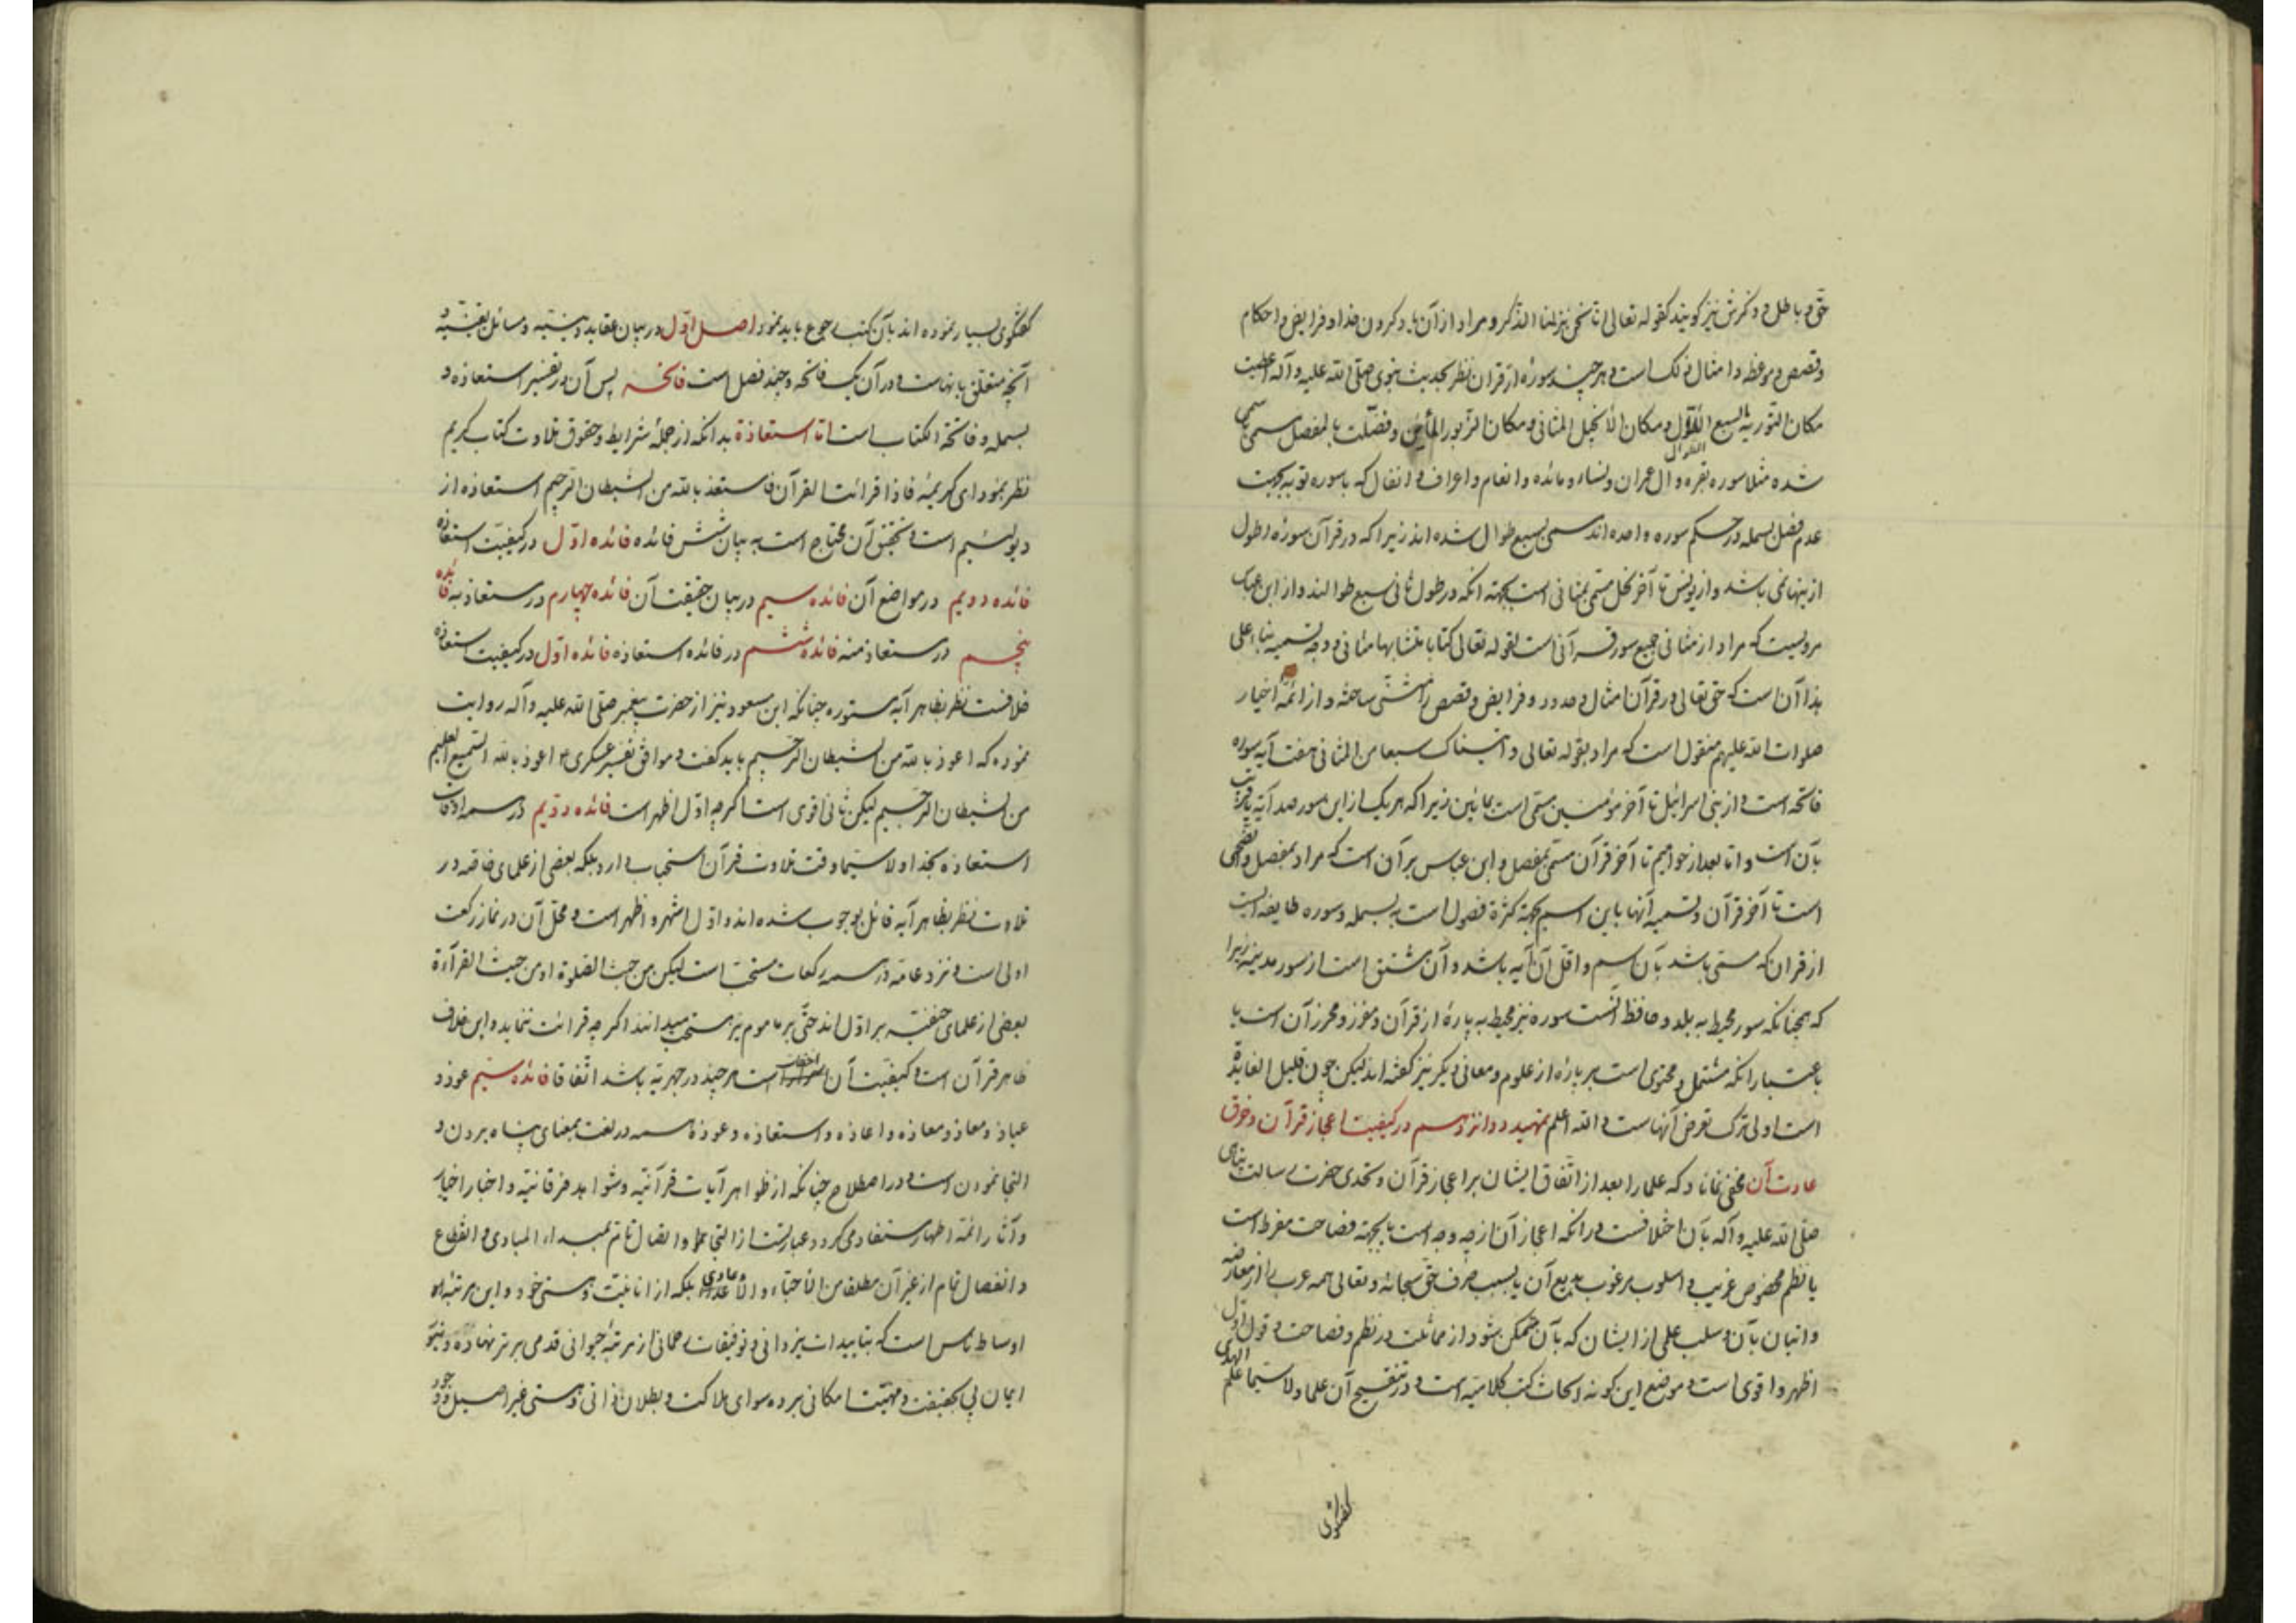 حق و باطل و ذکرش نیز کویند کقوله تعالی انا نحن نزلنا الذکر و مراد از آن یاد کردن خدا و فرایض و احکام
و قصص و موعظه و امثال ذلک است و هر چند سورۀ از قران نظر بحدیث نبوی صلی الله علیه و آله اعطیت
مکان التوریة السبع الطوال و مکان الانجیل المثانی و مکان الزبور المأین و فضلت بالمفصل مسمی
شده مثلا سوره بقره و ال عمران و نساء و مائده و انعام و اعراف و انفال که با سوره توبه بجهت
عدم فصل بسمله در حکم سوره واحده اند مسمی بسبع طوال شده اند زیرا که در قرآن سورۀ اطول
از ینها نمی باشد و از یونس تا آخر نحل مسمی بمثانی است بجهته انکه در طول ثانی سبع طوالند و از ابن عباس
مرویست که مراد از مثانی جمیع سور قرآنی است لقوله تعالی کتابا متشابها مثانی و وجه تسمیه بناء علی
هذا آن است که حق تعالی در قرآن امثال و حدود و فرایض و قصص را مثنی ساخته و از ائمۀ اخیار
صلوات الله علیهم منقول است که مراد بقوله تعالی و اتیناک سبعا من المثانی هفت آیه سوره
فاتحه است و از بنی اسرائیل تا آخر مؤمنین مسمی است بمائین زیرا که هر یک از این سور صد آیه یا قریب
بآن است و اما بعد از حوامیم تا آخر قرآن مسمی بمفصل و ابن عباس بر آن است که مراد بمفصل والضحی
است تا آخر قرآن و تسمیه آنها باین اسم بجهته کثرة فصول است به بسمله و سوره طایفه ایست
از قران که مسمی باشد بآن اسم و اقل آن آیه باشد و آن مشتق است از سور مدینه زیرا
که همچنانکه سور محیط به بلد و حافظ انست سوره نیز محیط به پارۀ از قرآن و مفرز و محرز آن است یا
باعتبار انکه مشتمل و محتوی است بر پارۀ از علوم و معانی دیکر نیز کفته اند لیکن چون قلیل الفایدة
است اولی ترک تعرض آنهاست و الله اعلم تمهید دوازدهم در کیفیت اعجاز قرآن و خرق
عادت آن مخفی نماناد که علما را بعد از اتفاق ایشان بر اعجاز قرآن و تحدی حضرت رسالت پناهی
صلی الله علیه و آله بآن اختلافست در انکه اعجاز آن از چه وجه است یا بجهته فصاحت مفرط است
یا نظم مخصوص غریب و اسلوب مرغوب بدیع آن یا بسبب صرف حق سبحانه و تعالی همه عرب را از معارضه
و اتیان بآن و سلب علمی از ایشان که بآن متمکن شود از مماثلت در نظم و فصاحت و قول اول
اظهر و اقوی است و موضع این کونه ابحاث کتب کلامیه است و در تنقیح آن علما و لا سیما علم الهدی
کفتکوی
کفتکوی بسیار نموده اند بآن کتب رجوع باید نمود اصل اول در بیان عقاید دینیه و مسائل یقینیه و
آنچه متعلق بانهاست و در آن یک فاتحه و چند فصل است فاتحه پس آن در تفسیر استعاذه و
بسمله و فاتحة الکتاب است اما استعاذة بدانکه از جملۀ شرایط و حقوق تلاوت کتاب کریم
نظر بمؤدای کریمۀ فاذا قرائت القرآن فاستعذ بالله من الشیطان الرجیم استعاذه از
دیو رجیم است و تحقیق آن محتاج است به بیان شش فائده فائده اول در کیفیت استعاذه
فائده دویم در مواضع آن فائده سیم در بیان حقیقت آن فائده چهارم در مستعاذ به فائده
پنجم در مستعاذ منه فائده ششم در فائده استعاذه فائده اول در کیفیت استعاذه
خلافست نظر بظاهر آیه مسطوره چنانکه ابن مسعود نیز از حضرت پیغمبر صلی الله علیه و آله روایت
نموده که اعوذ بالله من الشیطان الرجیم باید کفت و موافق تفسیر عسکری ع اعوذ بالله السمیع العلیم
من الشیطان الرجیم لیکن ثانی اقوی است اکرچه اول اظهر است فائده دویم در همه اوقات
استعاذه بخدا و لا سیما وقت تلاوت قرآن استحباب دارد بلکه بعضی از علمای خاصه در
تلاوت نظر بظاهر آیه قائل بوجوب شده اند و اول اشهر و اظهر است و محل آن در نماز رکعت
اولی است و نزد عامه در همه رکعات مستحب است لیکن من حیث الصلوة او من حیث القرآءة
بعضی از علمای حنفیه بر اول اند حتی بر ماموم نیز مستحب میدانند اکر چه قرائت ننماید و این خلاف
ظاهر قرآن است و کیفیت آن اخفات است هر چند در جهریه باشد اتفاقا فائده سیم عوذ و
عیاذ و معاذ و معاذه و اعاذه و استعاذه و عوذه همه در لغت بمعنای پناه بردن و
التجا نمودن است و در اصطلاح چنانکه از ظواهر آیات قرآنیه و شواهد فرقانیه و اخبار اخیار
و آثار ائمه اطهار مستفاد می کردد عبارتست از التجا علما و اتصال تام بمبداء المبادی و انقطاع
و انفصال تام از غیر آن مطلقا من الاحبّاء و الاعادی بلکه از انانیت و هستی خود و این مرتبۀ
اوساط ناس است که بتاییدات یزدانی و توفیقات رحمانی از مرتبۀ حیوانی قدمی برتر نهاده و بنور
ایمان پی بحقیقت و مهیت امکانی برده سوای هلاکت و بطلان ذاتی و هستی غیر اصیل وجود